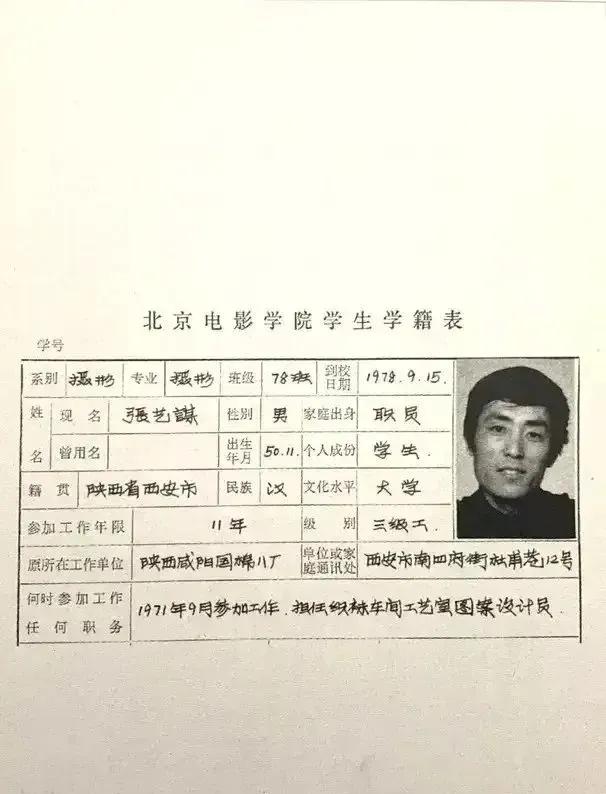 北京电影学院学生学籍表
学号
系别 摄影 专业 摄影 班级 78班 到校日期 1978.9.15.
姓名 现名 張艺謀 性别 男 家庭出身 职员
曾用名 出生年月 50.11. 个人成份 学生.
籍贯 陕西省西安市 民族 汉 文化水平 大学
参加工作年限 11年 级别 三级工.
原所在工作单位 陕西咸阳国棉八厂 单位或家庭通讯处 西安市南四府街社甫巷12号
何时参加工作任何职务 1971年9月参加工作、担任织袜车间工艺室图案设计员.